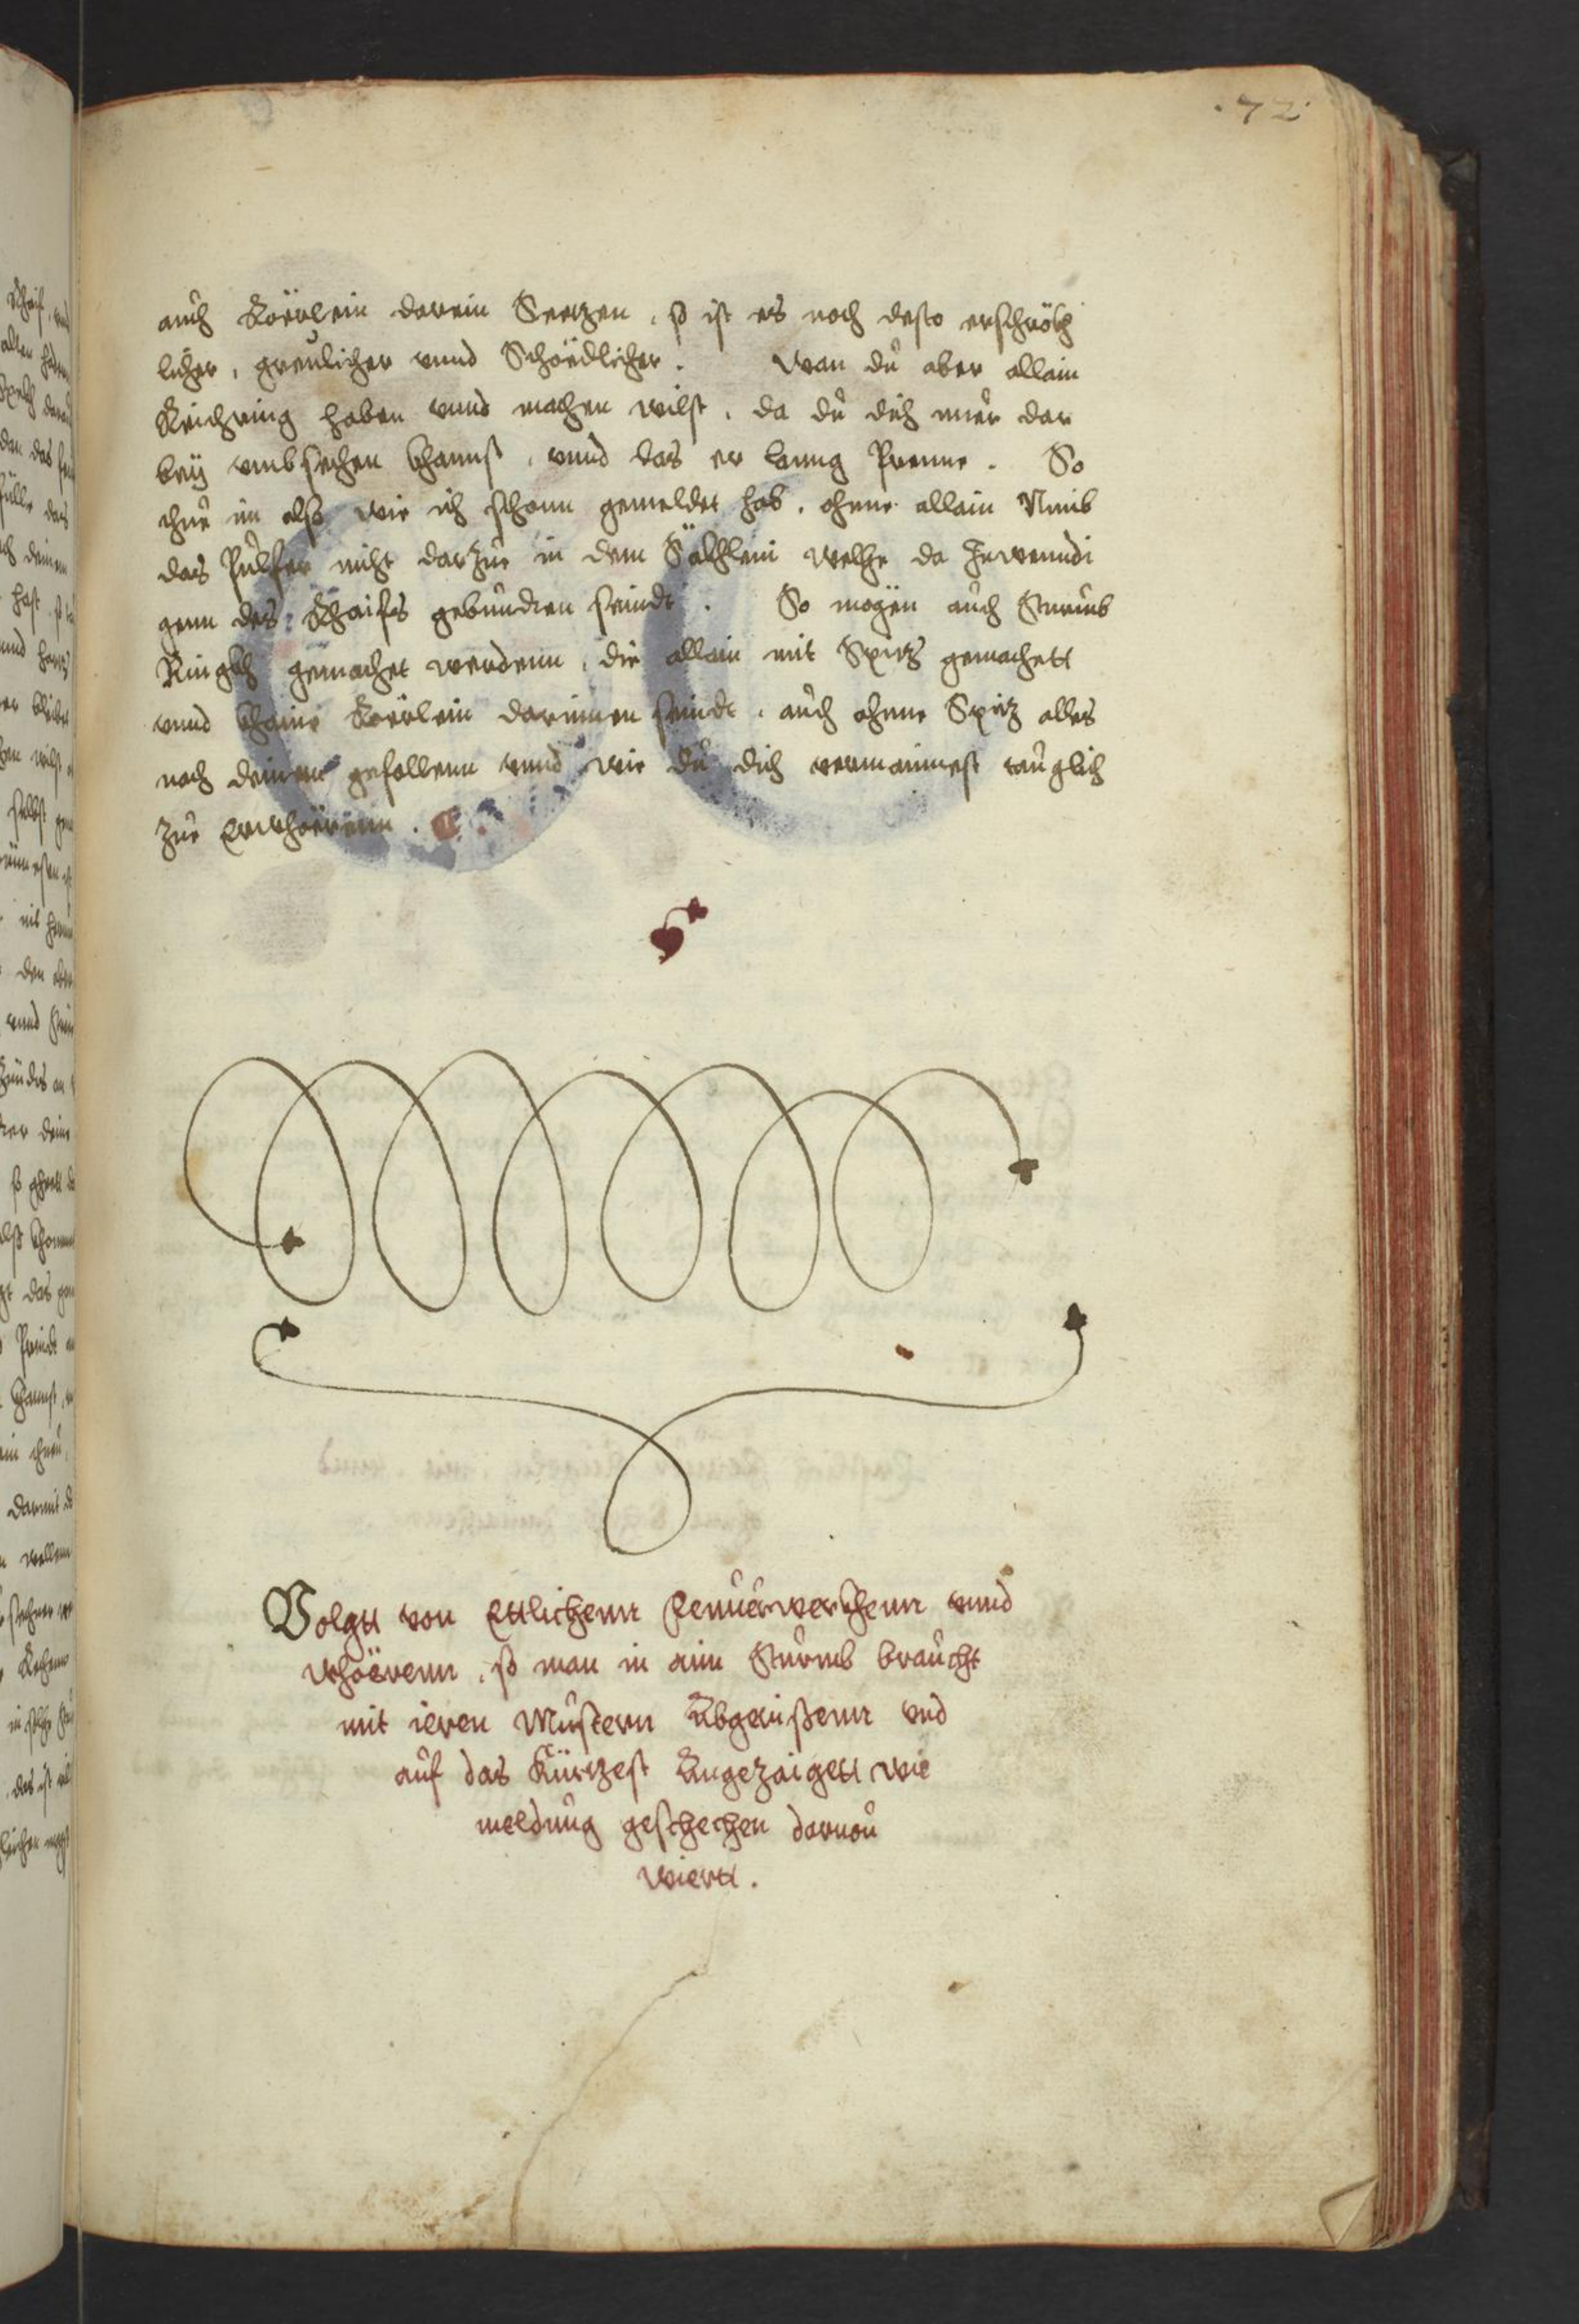 .72.
auch Röerlein darein Seetzen, so ist es noch desto erschröckh
licher, greulicher unnd Schöedlicher. Wan du aber allain
Reichring haben unnd machen wilst, da du dich nuer dar
bey umbsechen khannst, unnd das er lanng Prenne. So
thue im also wie ich schonn gemeldet hab, ohnne allain Nimb
das Pulfer nicht darzue in dem Säckhlein welche da Inwenndi
genn des Rhaifs gebunden seindt. So mögen auch Sturmb
Ringkh gemachet werdenn, die allain mit Spitz gemachett
unnd khaine Röerlein darinnen seindt, auch ohnne Spitz alles
nach deinem gefallenn unnd wie du dich vermainnest tauglich
zue
Volgtt von Ettlichenn Feuerwerckhenn unnd
whöerenn, so man in ainn Sturmb braucht
mit ieren Musternn Abgerissenn und
auf das Kürtzest Angezaigett wie
meldung geschechen darvon
wiertt.